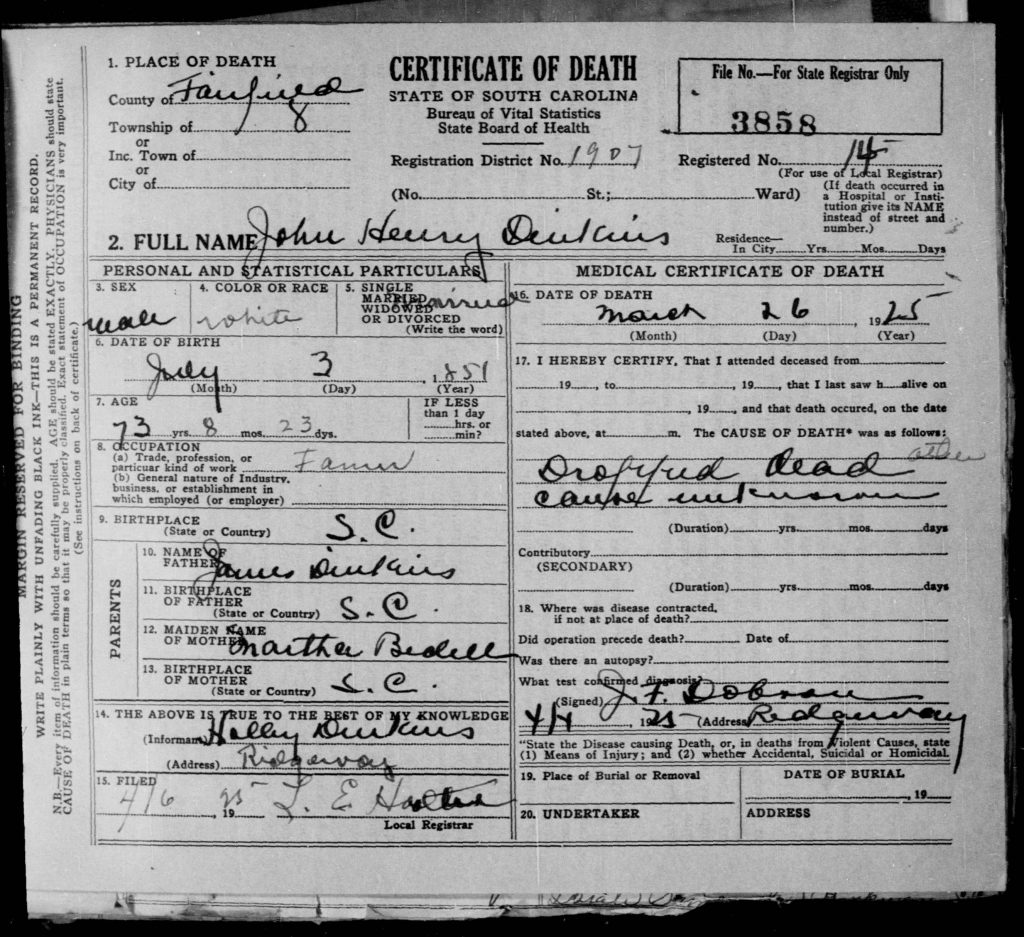 MARGIN RESERVED FOR BINDING
WRITE PLAINLY WITH UNFADING BLACK INK—THIS IS A PERMANENT RECORD.
N.B.—Every item of information should be carefully supplied. AGE should be stated EXACTLY. PHYSICIANS should state
CAUSE OF DEATH in plain terms so that it may be properly classified. Exact statement of OCCUPATION is very important.
(See instructions on back of certificate.)
1. PLACE OF DEATH
County of Fairfield
Township of
or
Inc. Town of
or
City of
CERTIFICATE OF DEATH
STATE OF SOUTH CAROLINA
Bureau of Vital Statistics
State Board of Health
File No.—For State Registrar Only
3858
Registration District No. 1907
Registered No. 15
(For use of Local Registrar)
(No. St.; Ward)
(If death occurred in
a Hospital or Insti-
tution give its NAME
instead of street and
number.)
2. FULL NAME John Henry Dinkins
Residence—
In City Yrs. Mos. Days
PERSONAL AND STATISTICAL PARTICULARS
3. SEX
male
4. COLOR OR RACE
white
5. SINGLE
MARRIED
WIDOWED
OR DIVORCED
(Write the word)
Married
6. DATE OF BIRTH
July 3, 1851
(Month) (Day) (Year)
7. AGE
73 yrs. 8 mos. 23 dys.
IF LESS
than 1 day
hrs. or
min?
8. OCCUPATION
(a) Trade, profession, or
particuar kind of work Famer
(b) General nature of Industry,
business, or establishment in
which employed (or employer)
9. BIRTHPLACE
(State or Country) S.C.
PARENTS
10. NAME OF
FATHER James Dinkins
11. BIRTHPLACE
OF FATHER
(State or Country) S.C.
12. MAIDEN NAME
OF MOTHER Marther Bedell
13. BIRTHPLACE
OF MOTHER
(State or Country) S.C.
14. THE ABOVE IS TRUE TO THE BEST OF MY KNOWLEDGE
(Informant) Holley Dinkins
(Address) Ridgeway
15. FILED
4/6 1925 L. E.
Local Registrar
MEDICAL CERTIFICATE OF DEATH
16. DATE OF DEATH
March 26, 1925
(Month) (Day) (Year)
17. I HEREBY CERTIFY, That I attended deceased from
, 19, to, 19, that I last saw h alive on
, 19, and that death occured, on the date
stated above, at m. The CAUSE OF DEATH* was as follows:
Dropped dead
cause unknown
(Duration) yrs. mos. days
Contributory
(SECONDARY)
(Duration) yrs. mos. days
18. Where was disease contracted,
if not at place of death?
Did operation precede death? Date of
Was there an autopsy?
What test confirmed diagnosis?
(Signed) J. F. Dobson
4/4 1925 (Address) Ridgeway
"State the Disease causing Death, or, in deaths from Violent Causes, state
(1) Means of Injury; and (2) whether Accidental, Suicidal or Homicidal.
19. Place of Burial or Removal
DATE OF BURIAL
, 19
20. UNDERTAKER
ADDRESS